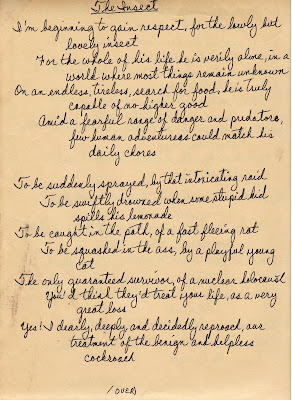 The Insect
I'm beginning to gain respect, for the lowly but
lovely insect
For the whole of his life he is verily alone, in a
world where most things remain unknown
On an endless, tireless, search for food, he is truly
capable of no higher good
Amid a fearful range of danger and predators,
few human adventurers could match his
daily chores
To be suddenly sprayed, by that intoxicating raid
To be swiftly drowned when some stupid kid
spills his lemonade
To be caught in the path, of a fast fleeing rat
To be squashed in the ass, by a playful young
cat
The only guaranteed survivor, of a nuclear holocaust
You'd think they'd treat your life, as a very
great loss
Yes! I dearly, deeply, and decidedly reproach, our
treatment of the benign and helpless
cockroach
(OVER)